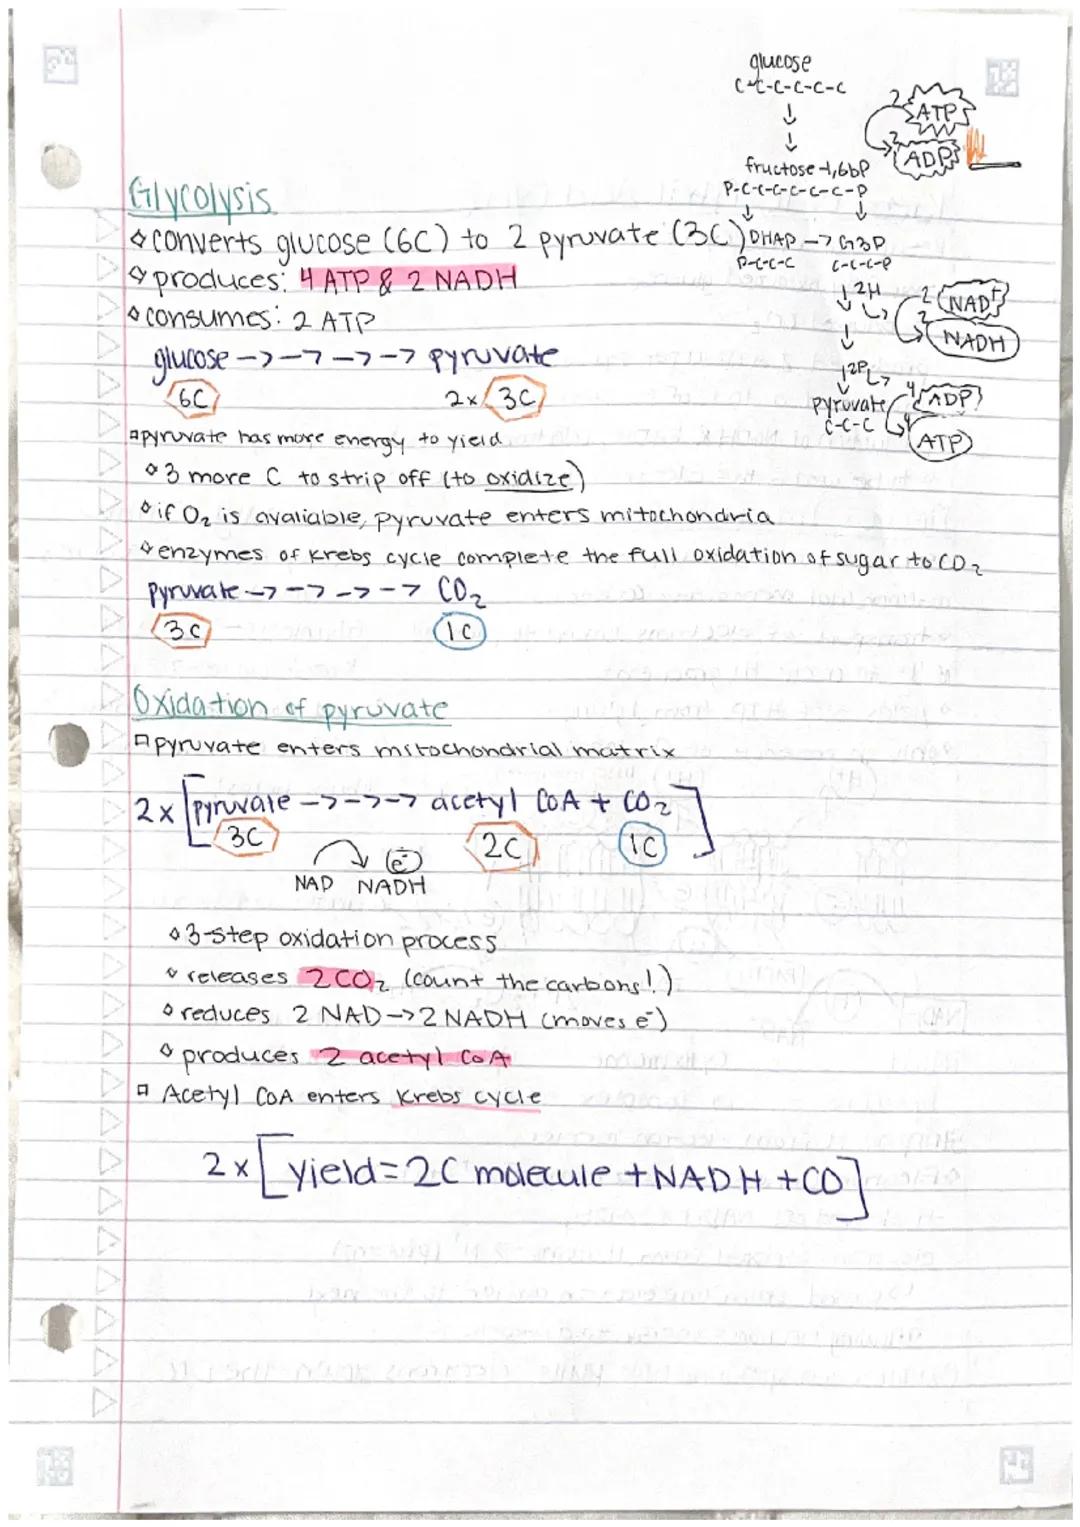 glucose
C-C-C-C-C-C
2 ATP
2 ADP
fructose-1,6bP
P-C-C-C-C-C-C-P
Glycolysis
converts glucose (6C) to 2 pyruvate (3C)
DHAP -> G3P
P-C-C-C C-C-C-P
produces: 4 ATP & 2 NADH
2H
2 NAD+
2 NADH
consumes: 2 ATP
glucose ->->->-> pyruvate
6C 2x 3C
2Pi
pyruvate
C-C-C
4 ADP
4 ATP
pyruvate has more energy to yield
3 more C to strip off (to oxidize)
if O2 is avaliable, pyruvate enters mitochondria
enzymes of Krebs cycle complete the full oxidation of sugar to CO2
pyruvate ->->->-> CO2
3C 1C
Oxidation of pyruvate
pyruvate enters mitochondrial matrix
2x [pyruvate ->->->-> acetyl CoA + CO2]
3C 2C 1C
e-
NAD NADH
3-step oxidation process
releases 2CO2 (count the carbons!)
reduces 2 NAD->2 NADH (moves e-)
produces 2 acetyl CoA
Acetyl CoA enters Krebs cycle
2x [yield=2C molecule +NADH +CO]